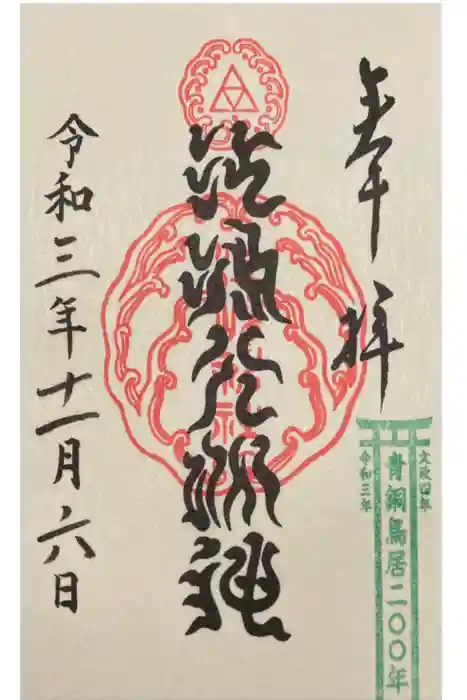 奉拝
江嶋大明神
令和三年十一月六日
文政四年
青銅鳥居二〇〇年
令和三年